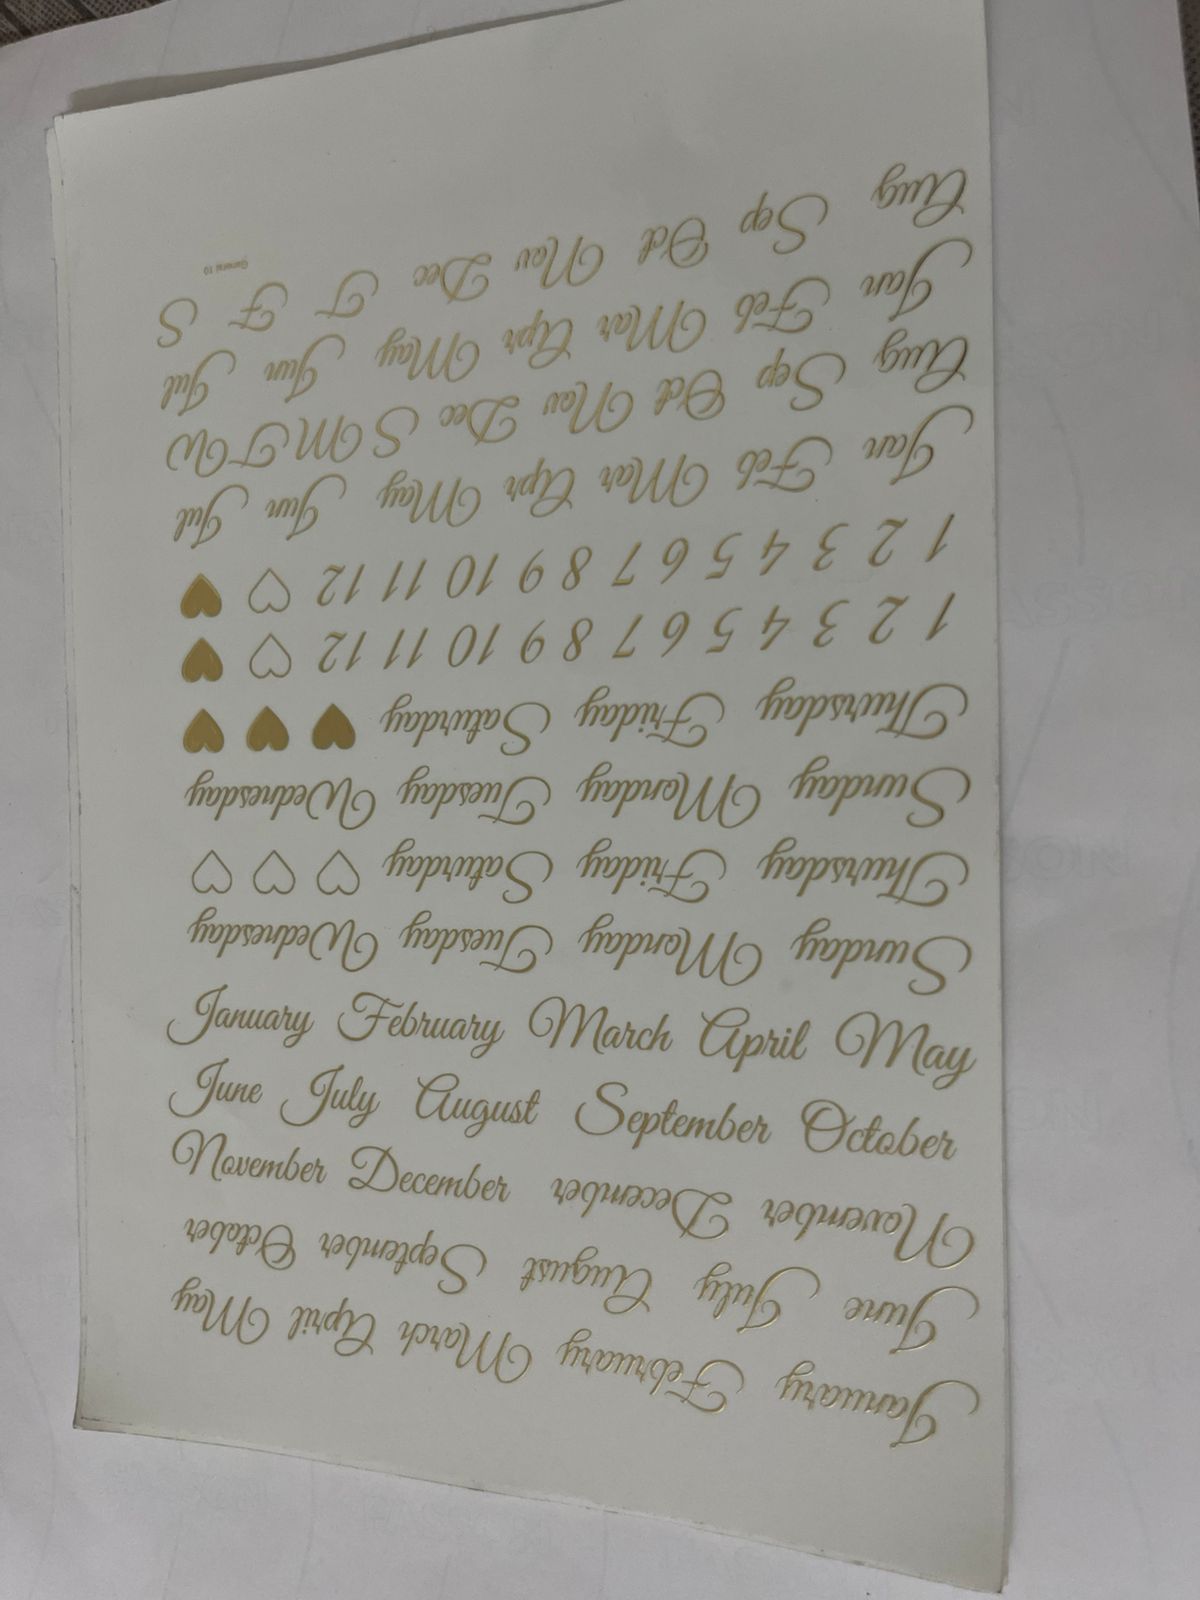 January February March April May
June July August September October
November December
November December
June July August September October
January February March April May
Sunday Monday Tuesday Wednesday
Thursday Friday Saturday
Sunday Monday Tuesday Wednesday
Thursday Friday Saturday
1 2 3 4 5 6 7 8 9 10 11 12
1 2 3 4 5 6 7 8 9 10 11 12
Jan Feb Mar Apr May Jun Jul
Aug Sep Oct Nov Dec S M T W
Jan Feb Mar Apr May Jun Jul
Aug Sep Oct Nov Dec T F S
General 10